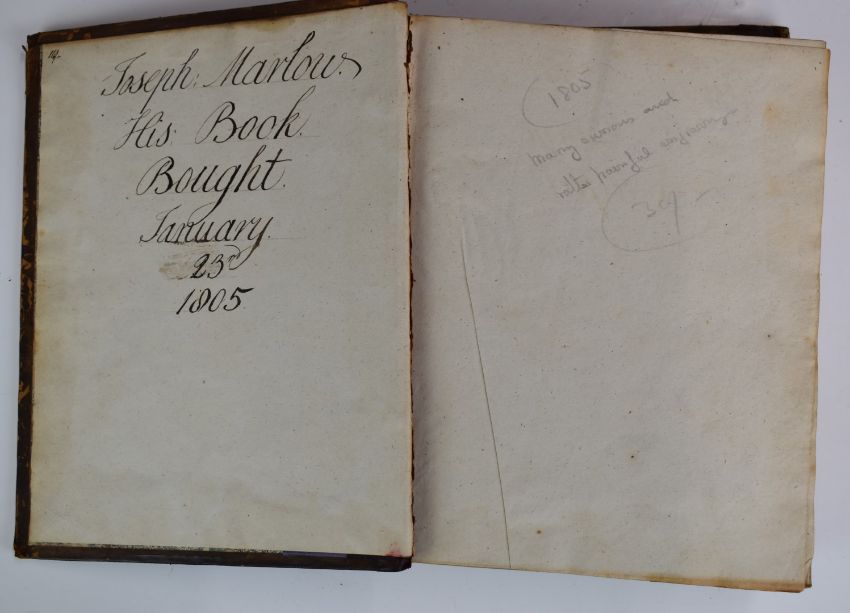 Joseph: Marlow.
His: Book.
Bought.
January.
23rd
1805
1805
many curious and
rather painful engravings